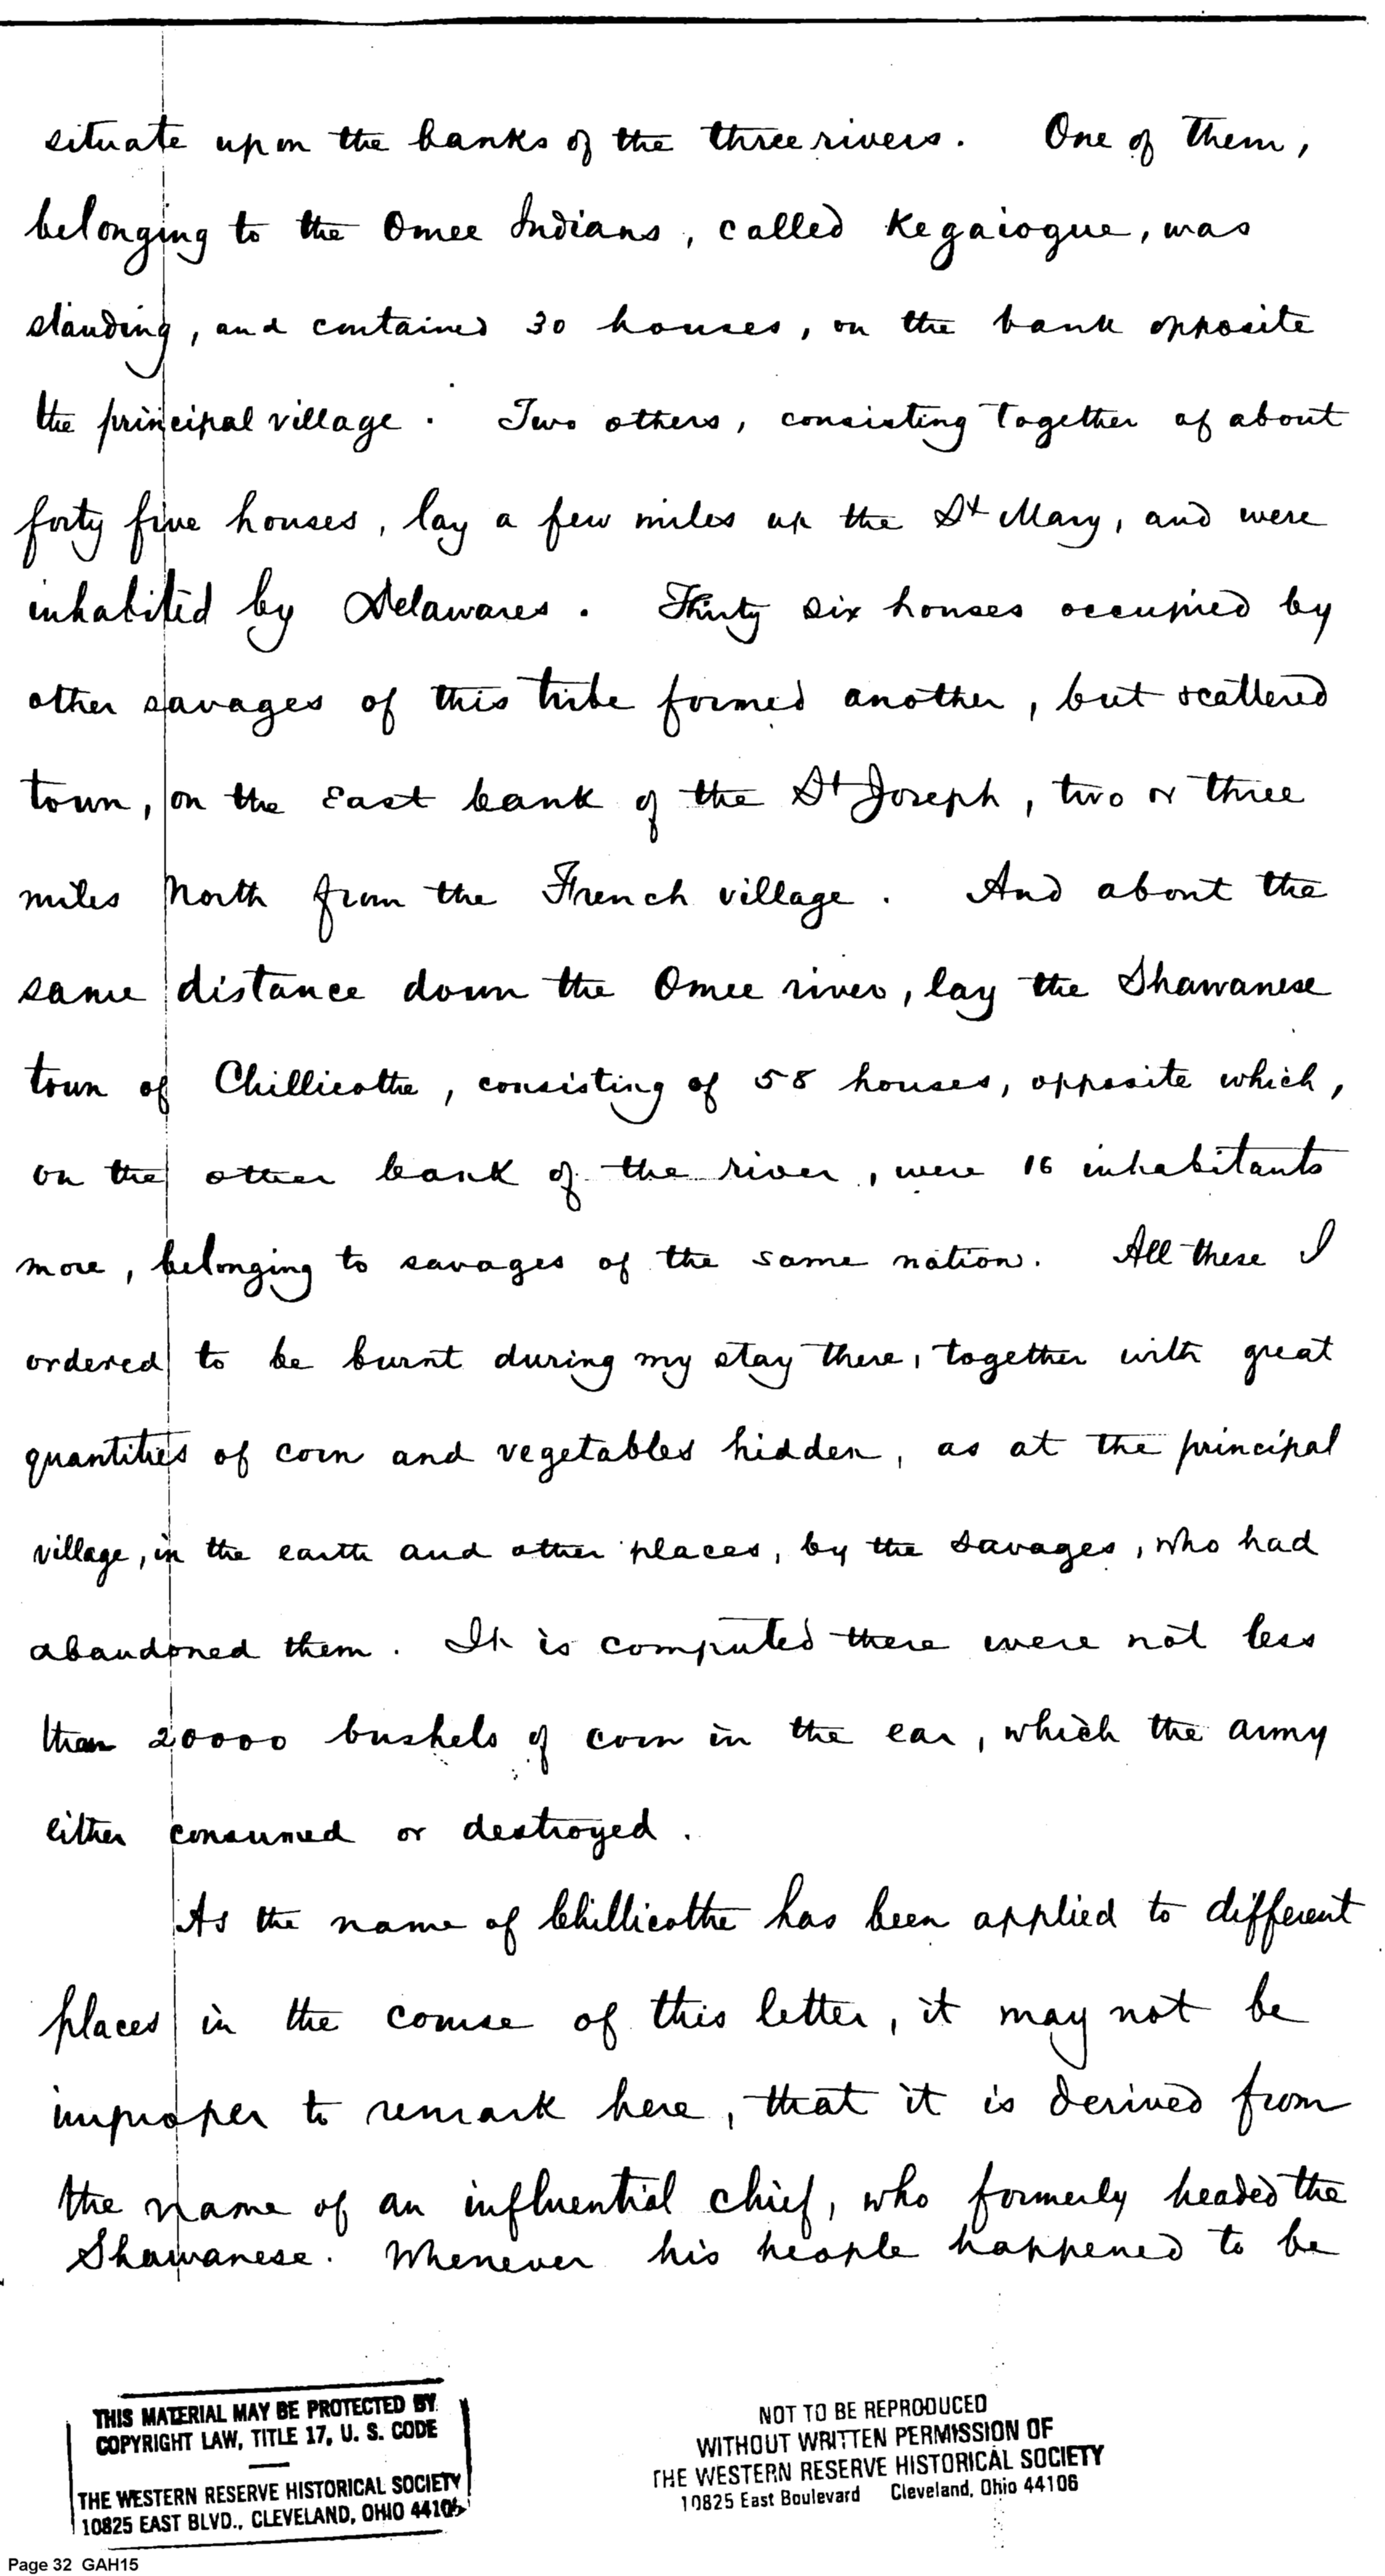 situate upon the banks of the three rivers. One of them,
belonging to the Omee Indians, called Kegaiogue, was
standing, and contained 30 houses, on the bank opposite
the principal village. Two others, consisting together of about
forty five houses, lay a few miles up the St Mary, and were
inhabited by Delawares. Thirty six houses occupied by
other savages of this tribe formed another, but scattered
town, on the East bank of the St Joseph, two or three
miles North from the French village. And about the
same distance down the Omee river, lay the Shawanese
town of Chillicothe, consisting of 58 houses, opposite which,
on the other bank of the river, were 16 inhabitants
more, belonging to savages of the same nation. All these I
ordered to be burnt during my stay there, together with great
quantities of corn and vegetables hidden, as at the principal
village, in the earth and other places, by the savages, who had
abandoned them. It is computed there were not less
than 20000 bushels of corn in the ear, which the army
either consumed or destroyed.
As the name of Chillicothe has been applied to different
places in the course of this letter, it may not be
improper to remark here, that it is derived from
the name of an influential chief, who formerly headed the
Shawanese. Whenever his people happened to be
THIS MATERIAL MAY BE PROTECTED BY
COPYRIGHT LAW, TITLE 17, U. S. CODE
THE WESTERN RESERVE HISTORICAL SOCIETY
10825 EAST BLVD., CLEVELAND, OHIO 44106
NOT TO BE REPRODUCED
WITHOUT WRITTEN PERMISSION OF
THE WESTERN RESERVE HISTORICAL SOCIETY
10825 East Boulevard Cleveland, Ohio 44106
Page 32 GAH15